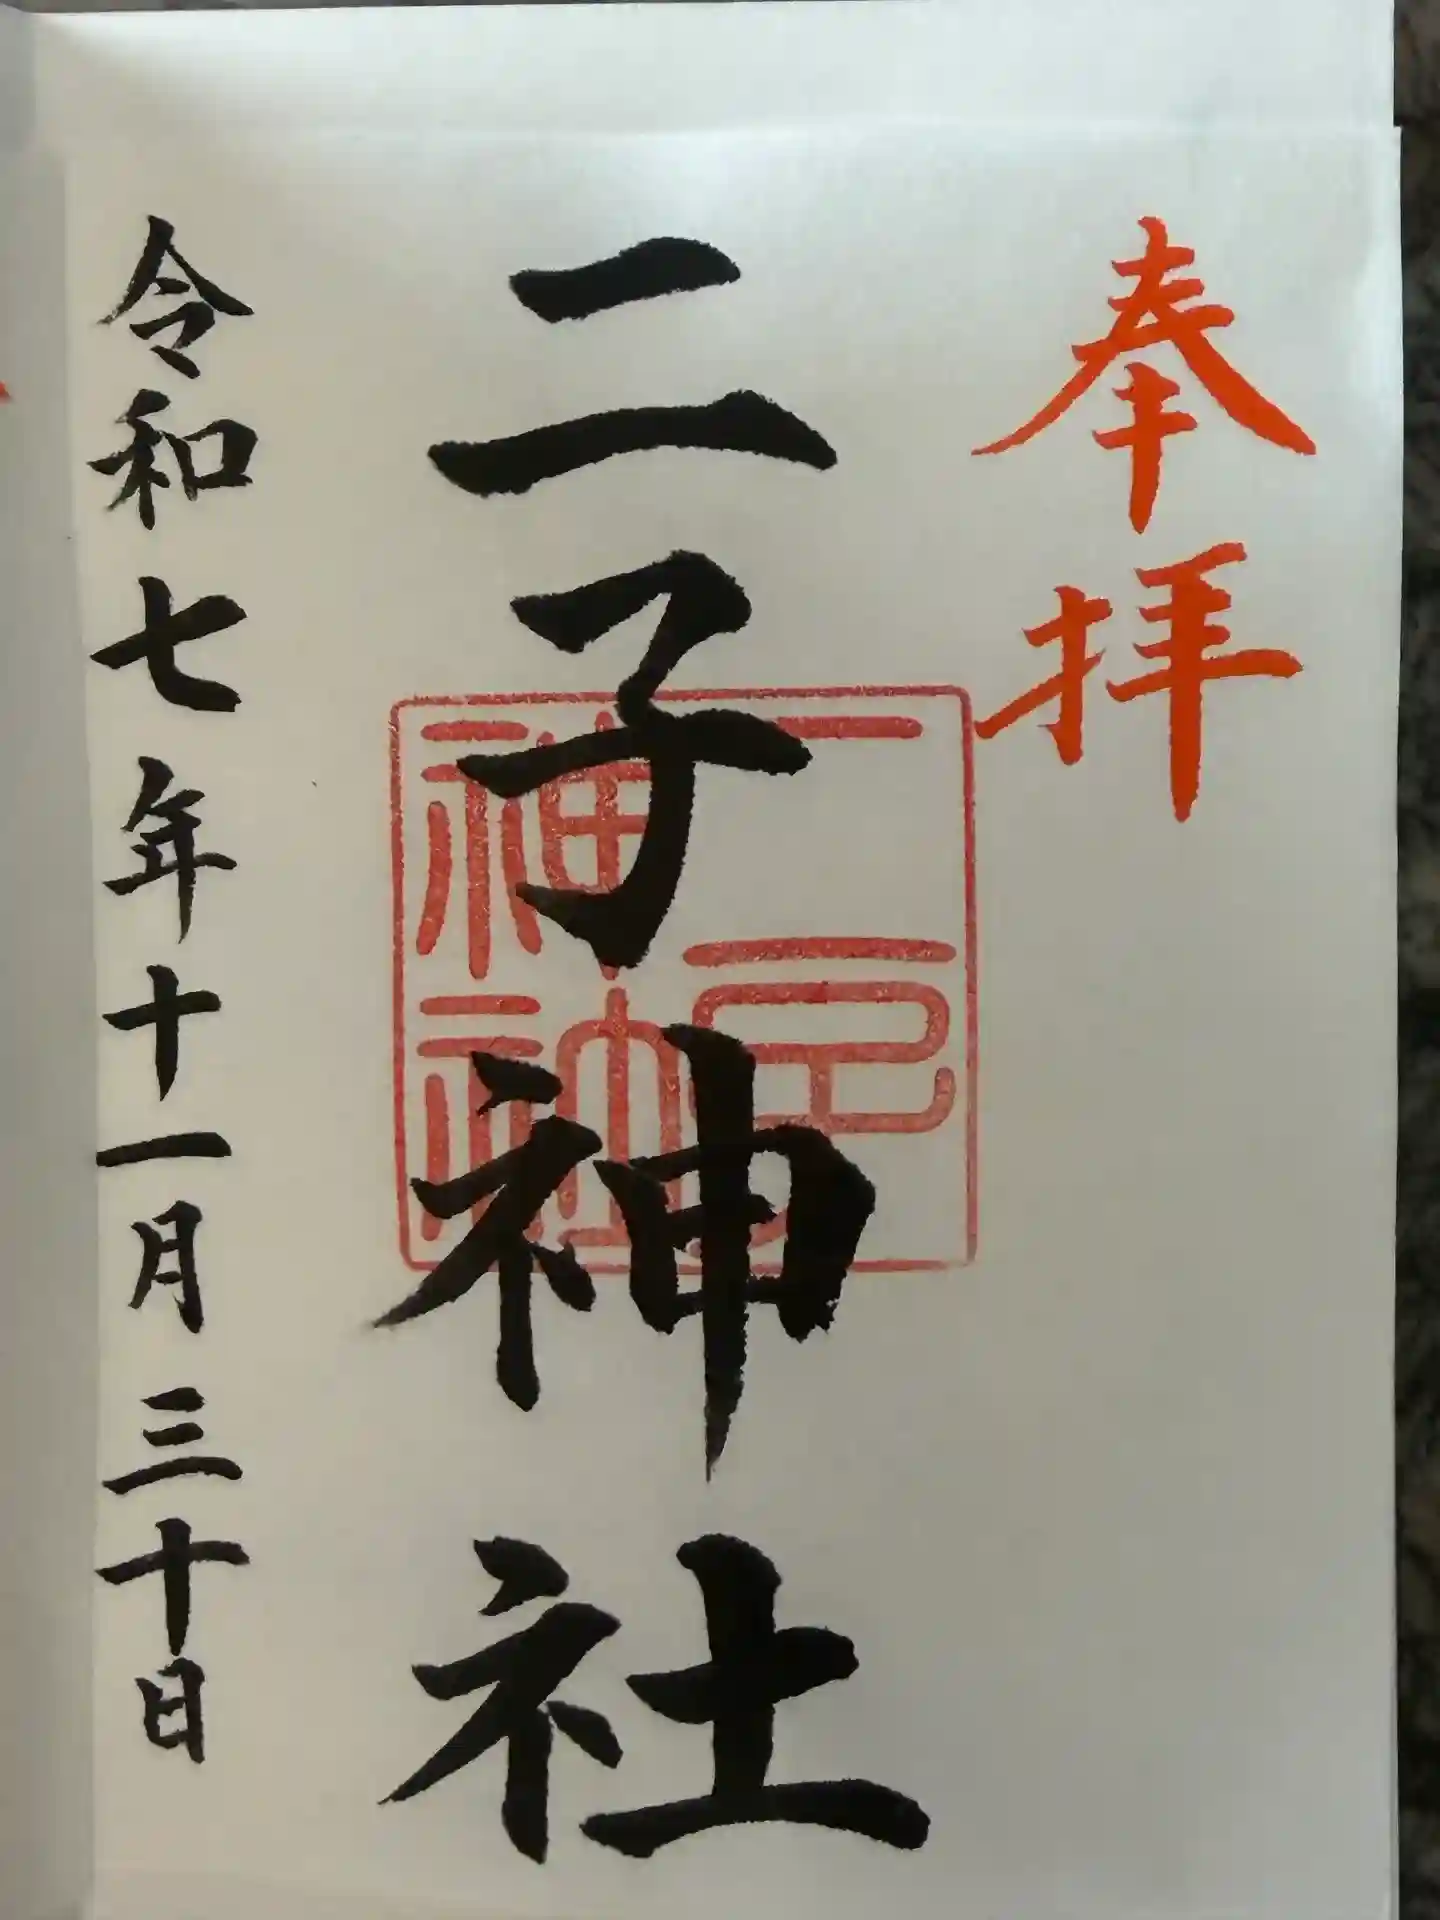 奉拝
二子神社
二子神社
令和七年十一月三十日